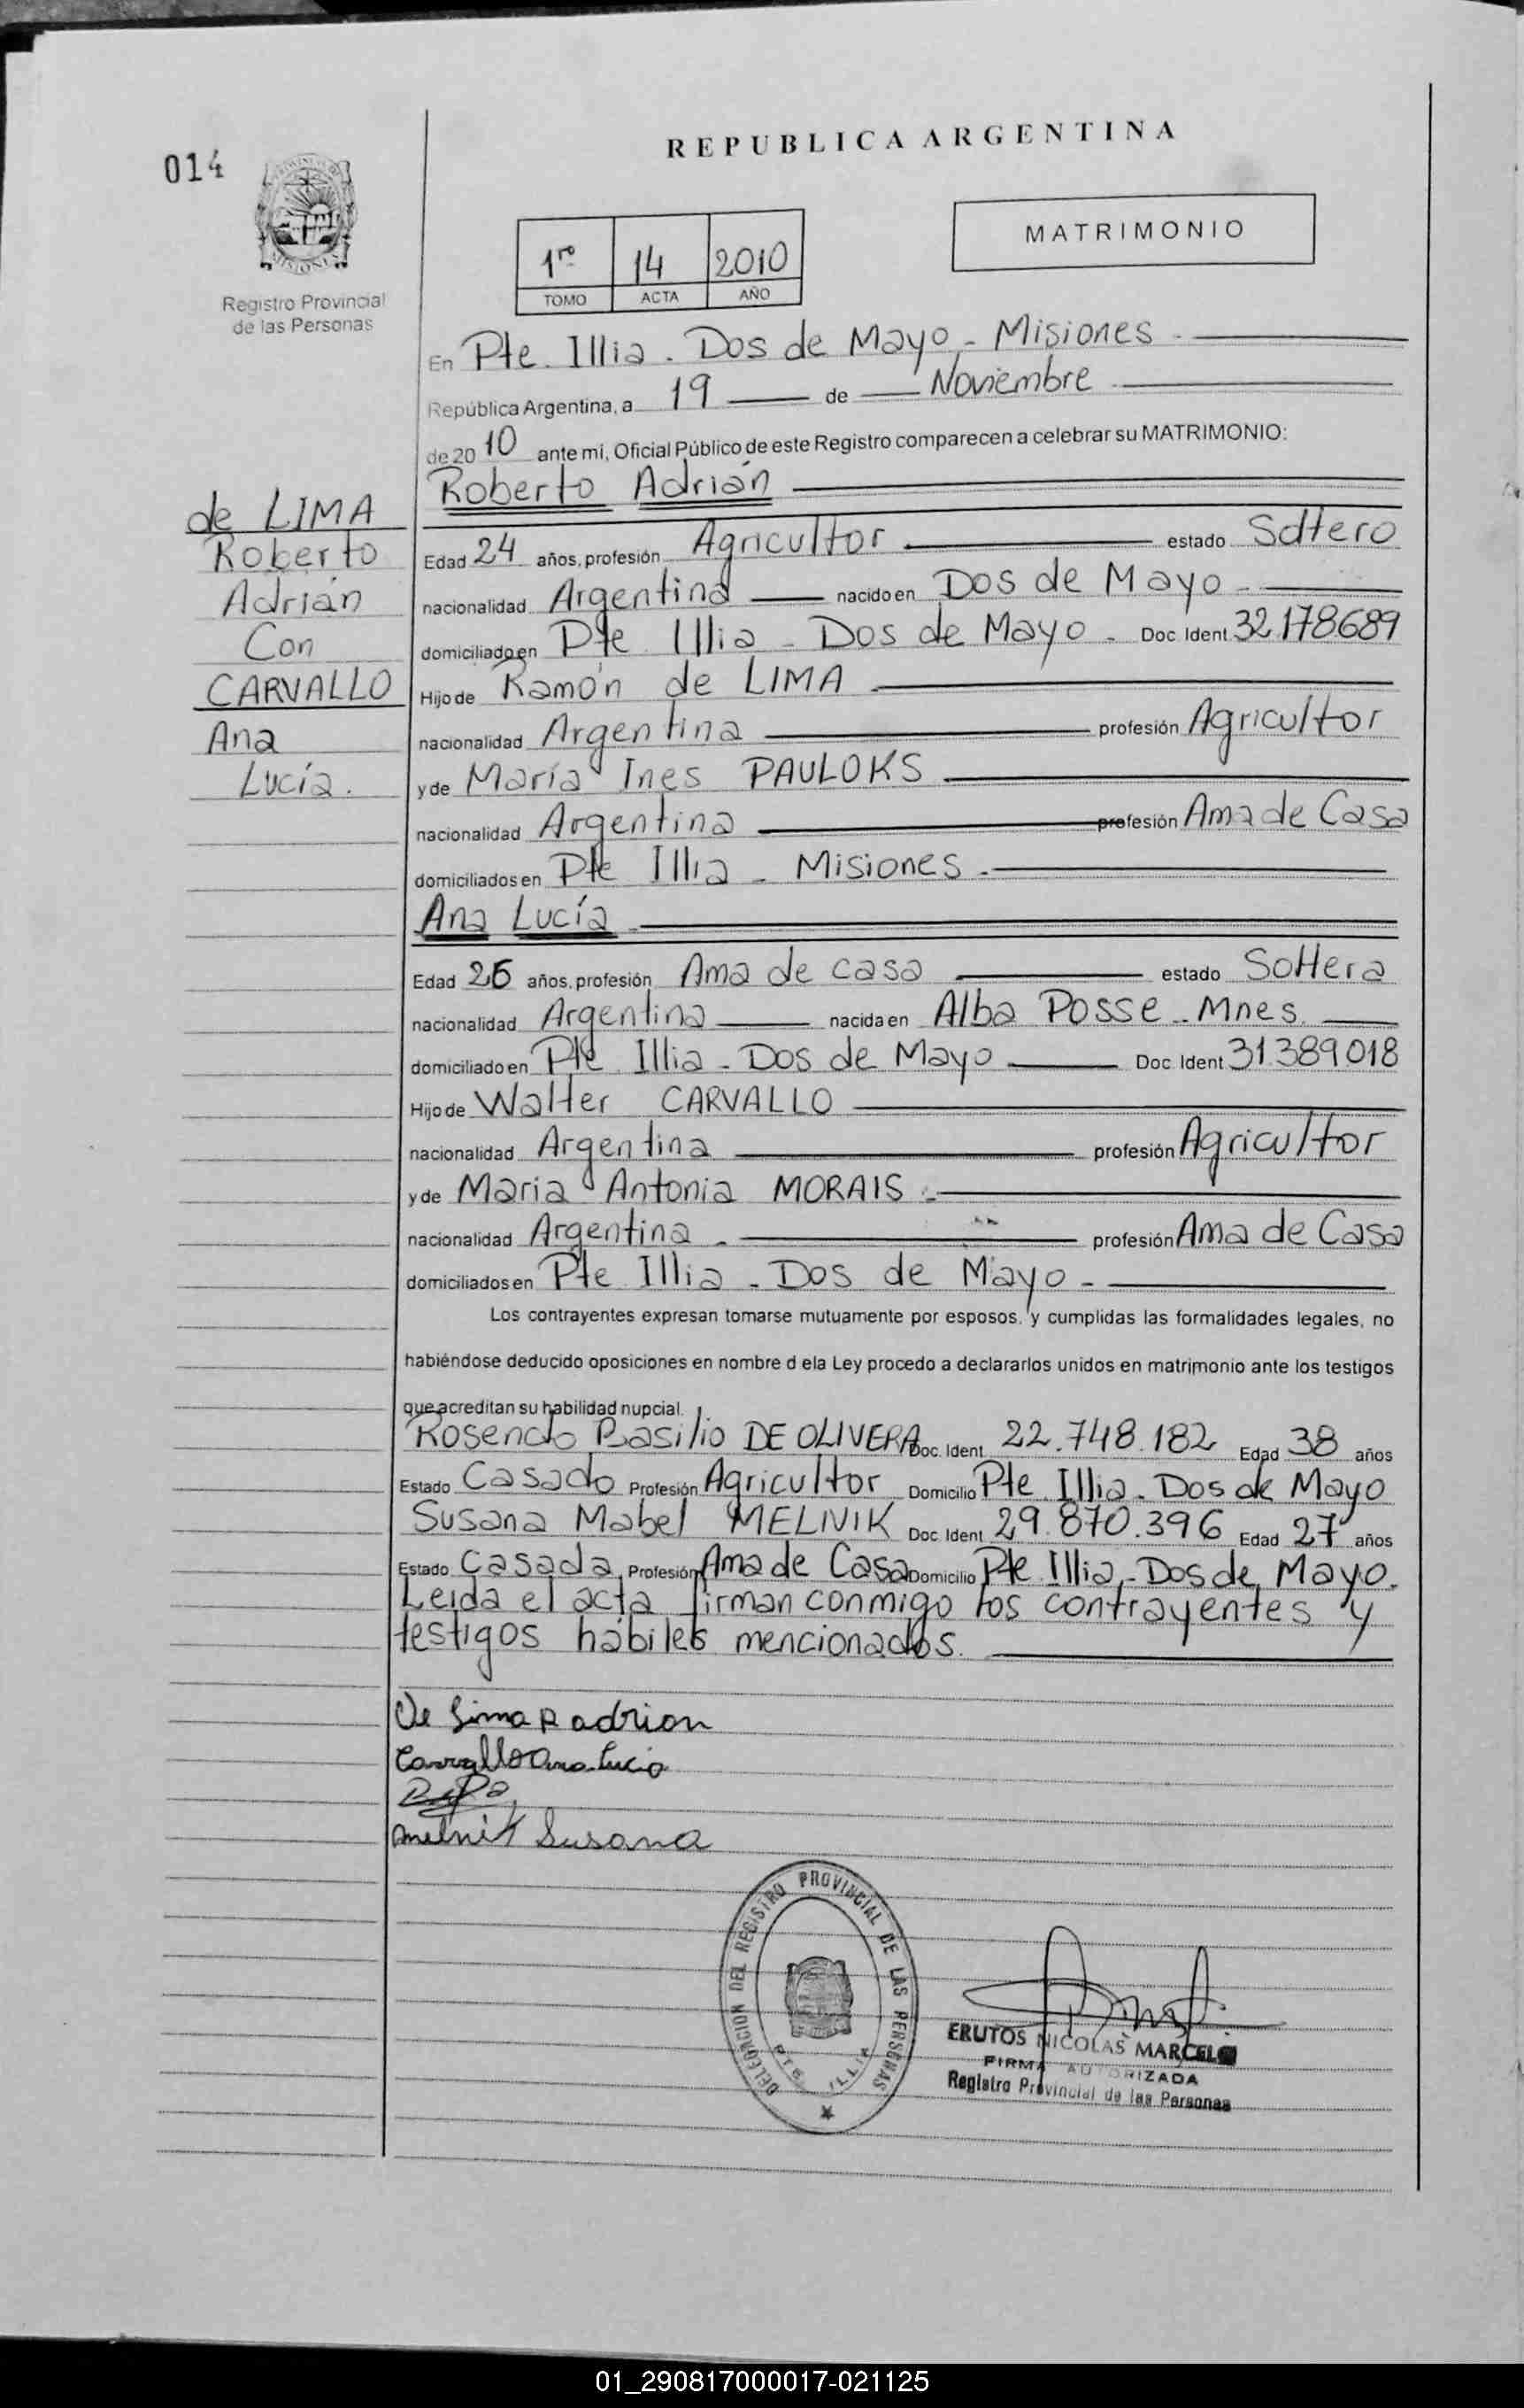 REPUBLICA ARGENTINA
014
MATRIMONIO
1ro 14 2010
TOMO ACTA AÑO
Registro Provincial
de las Personas
En Pte. Illia - Dos de Mayo - Misiones
República Argentina, a 19 de Noviembre
de 20 10 ante mi, Oficial Público de este Registro comparecen a celebrar su MATRIMONIO:
Roberto Adrián
de LIMA
Roberto
Adrián
Con
CARVALLO
Ana
Lucía.
Edad 24 años, profesión Agricultor estado Soltero
nacionalidad Argentina nacido en Dos de Mayo
domiciliado en Pte Illia - Dos de Mayo - Doc. Ident. 32.178689
Hijo de Ramón de LIMA
nacionalidad Argentina profesión Agricultor
y de María Ines PAULOKS
nacionalidad Argentina profesión Ama de Casa
domiciliados en Pte Illia - Misiones -
Ana Lucía
Edad 26 años, profesión Ama de casa estado Soltera
nacionalidad Argentina nacida en Alba Posse - Mnes.
domiciliado en Pte. Illia - Dos de Mayo Doc. Ident. 31.389.018
Hijo de Walter CARVALLO
nacionalidad Argentina profesión Agricultor
y de Maria Antonia MORAIS -
nacionalidad Argentina - profesión Ama de Casa
domiciliados en Pte Illia - Dos de Mayo -
Los contrayentes expresan tomarse mutuamente por esposos, y cumplidas las formalidades legales, no
habiéndose deducido oposiciones en nombre d ela Ley procedo a declararlos unidos en matrimonio ante los testigos
que acreditan su habilidad nupcial.
Rosendo Basilio DE OLIVERA Doc. Ident. 22.748.182 Edad 38 años
Estado Casado Profesión Agricultor Domicilio Pte Illia - Dos de Mayo
Susana Mabel MELNIK Doc. Ident. 29.870.396 Edad 27 años
Estado Casada Profesión Ama de Casa Domicilio Pte Illia - Dos de Mayo.
Leida el acta firman conmigo los contrayentes y
testigos hábiles mencionados.
De Lima R adrian
Carvallo Ana Lucia
Melnik Susana
DELEGACION DEL REGISTRO PROVINCIAL DE LAS PERSONAS
PTE ILLIA
FRUTOS NICOLAS MARCELO
FIRMA AUTORIZADA
Registro Provincial de las Personas
01_290817000017-021125